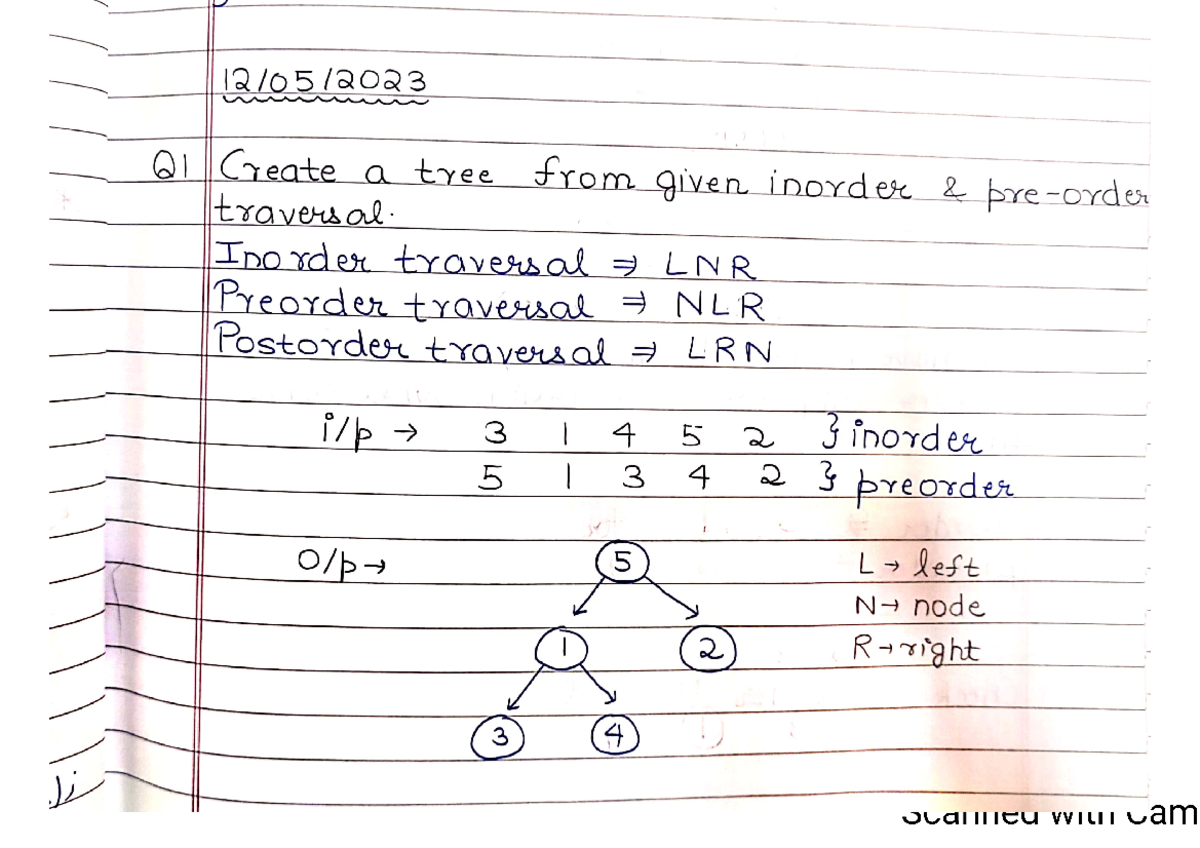 12/05/2023
Q1 Create a tree from given inorder & pre-order
traversal.
Inorder traversal ⇒ LNR
Preorder traversal ⇒ NLR
Postorder traversal ⇒ LRN
i/p → 3 1 4 5 2 } inorder
5 1 3 4 2 } preorder
O/p → 5 L → left
N → node
1 2 R → right
3 4
Scanned with Cam